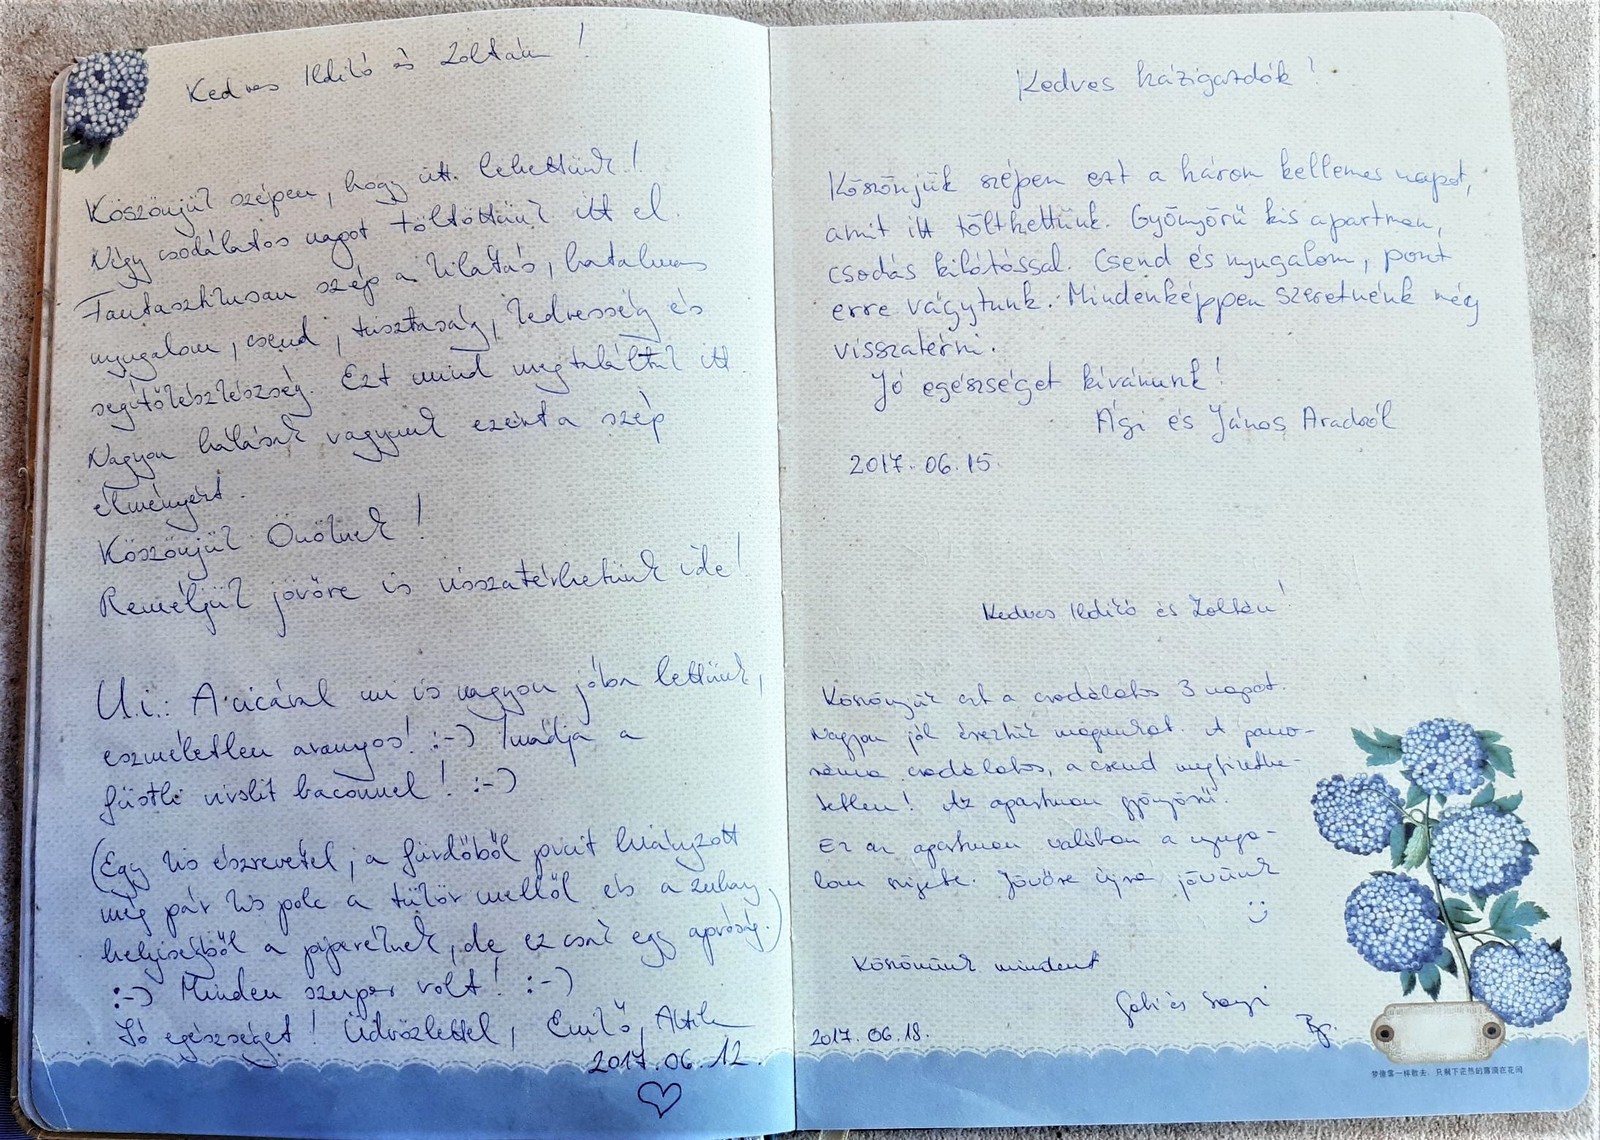 Kedves Ildikó és Zoltán!
Köszönjük szépen, hogy itt lehettünk!
Négy csodálatos napot töltöttünk itt el.
Fantasztikusan szép a kilátás, hatalmas
nyugalom, csend, tisztaság, kedvesség és
segítőkészkészség. Ezt mind megtaláltuk itt.
Nagyon hálásak vagyunk ezért a szép
élményért.
Köszönjük Önöknek!
Reméljük jövőre is visszatérhetünk ide!
U.i.: A cicával mi is nagyon jóba lettünk,
eszméletlen aranyos! :-) Imádja a
füstli virslit baconnel! :-)
(Egy kis észrevétel, a fürdőből picit hiányzott
még pár kis polc a tükör mellől és a zuhany
helyiségből a piperéknek, de ez csak egy apróság.)
:-) Minden szuper volt! :-)
Jó egészséget! Üdvözlettel, Enikő, Attila
2017.06.12.
Kedves házigazdók!
Köszönjük szépen ezt a három kellemes napot,
amit itt töltkettünk. Gyönyörű kis apartman,
csodás kilátással. Csend és nyugalom, pont
erre vágytunk. Mindenképpen szeretnénk még
visszatérni.
Jó egészséget kívánunk!
Ági és János Aradról
2017.06.15.
Kedves Ildikó és Zoltán!
Köszönjük ezt a csodálatos 3 napot.
Nagyon jól éreztük magunkat. A pano-
ráma csodálatos, a csend megfizethe-
tetlen! Az apartman gyönyörű.
Ez az apartman valóban a nyuga-
lom szigete. Jövőre újra jövünk
Köszönünk mindent
Gabi és
2017.06.18. Bp.
梦像雾一样散去，只剩下茫然的露滴在花间